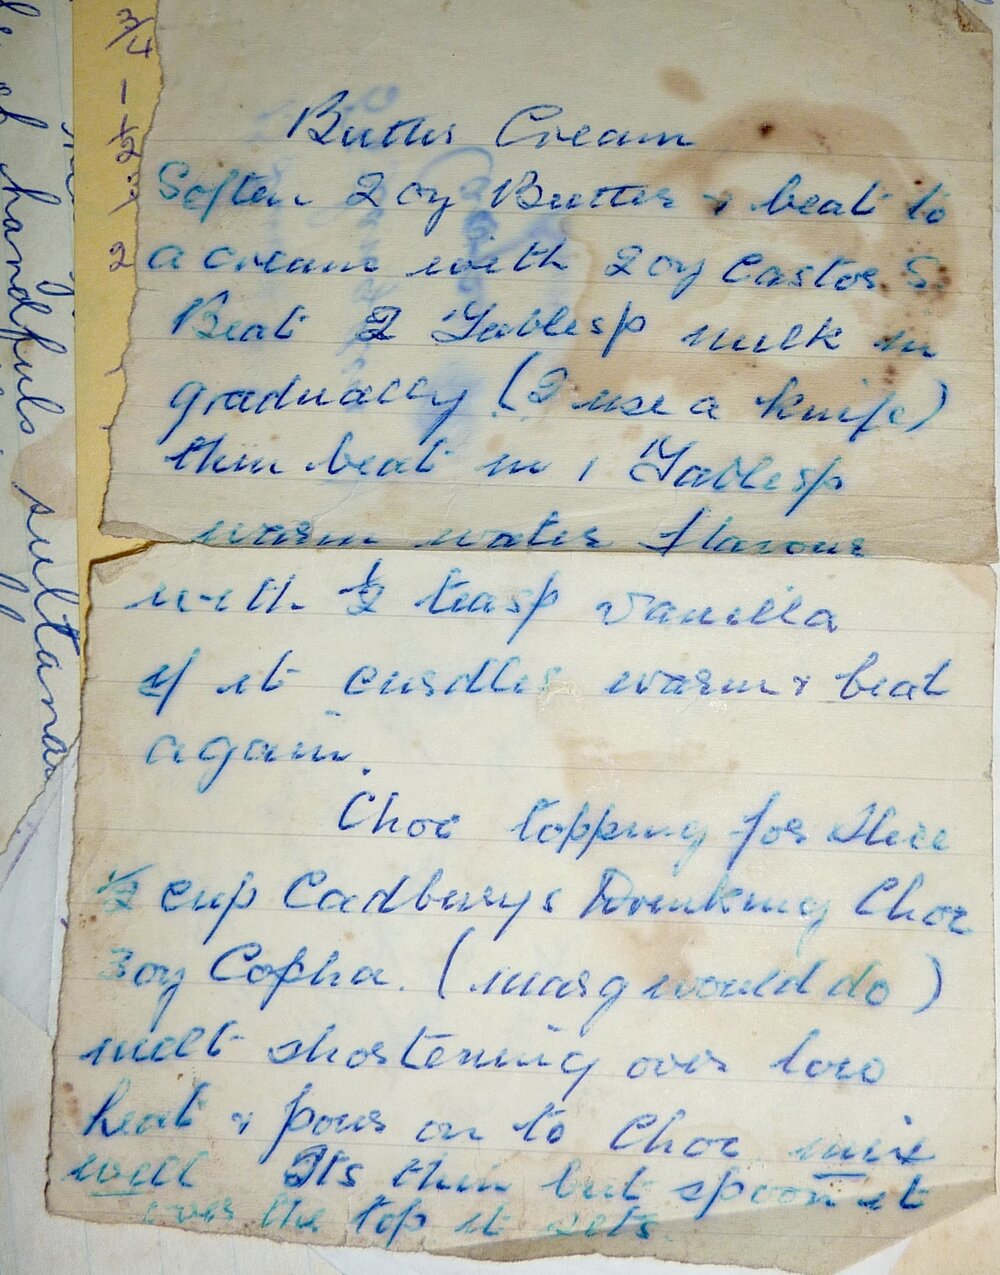 Butter Cream
Soften 2 oz Butter & beat to
a cream with 2 oz Castor S.
Beat 2 Tablesp milk in
gradually (I use a knife)
then beat in 1 Tablesp
warm water flavour
with ½ teasp vanilla
if it curdles warm & beat
again.
Choc topping for slice
½ cup Cadburys Drinking Choc
3oz Copha. (marg would do)
melt shortening over low
heat & pour on to Choc mix
well Its thin but spoon it
over the top it sets.
handfuls sultanas
3/4
1
2